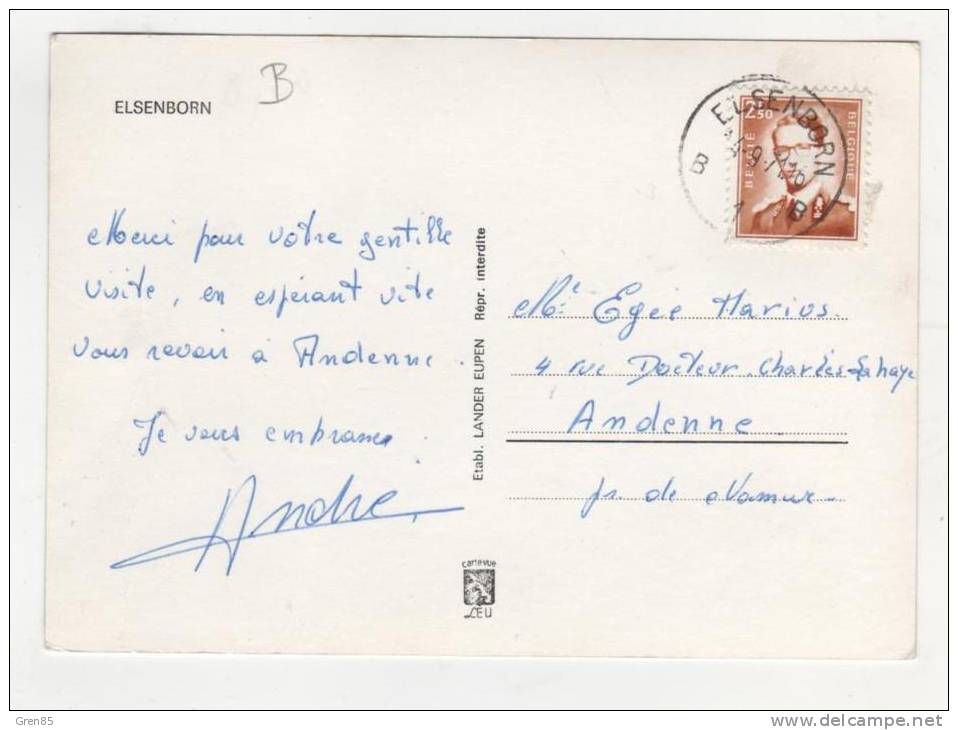 ELSENBORN
B
Merci pour votre gentille
visite, en espérant vite
vous revoir à Andenne.
Je vous embrasse.
André
Etabl. LANDER EUPEN Répr. interdite
carte vue
LEU
2,50
BELGIË BELGIQUE
ELSENBORN
B
1 B
Egée Marius.
4 rue Docteur Charles Lahaye
Andenne
pr. de Namur
Gren85
www.delcampe.net